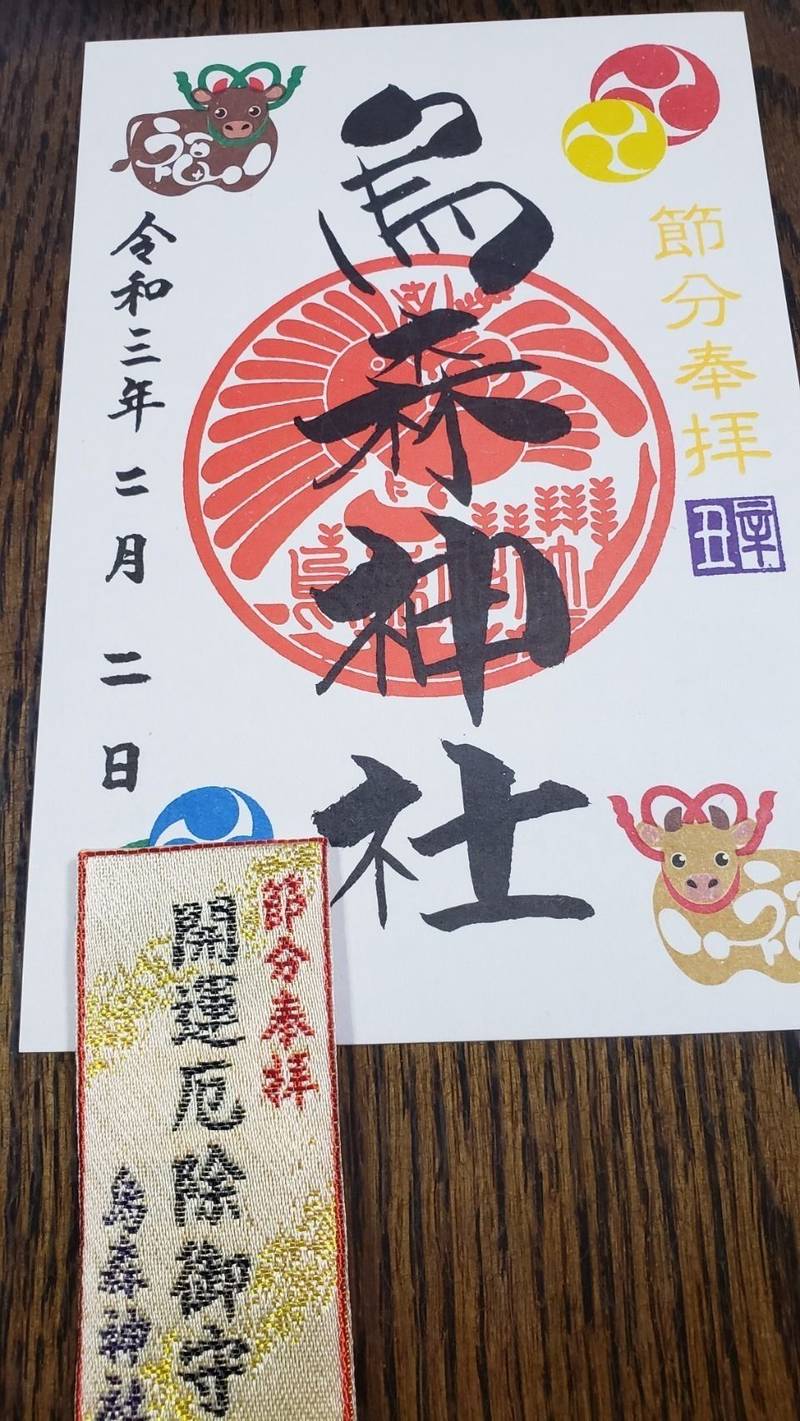 節分奉拝
辛丑
烏森神社
令和三年二月二日
福
福
節分奉拝
開運厄除御守
烏森神社